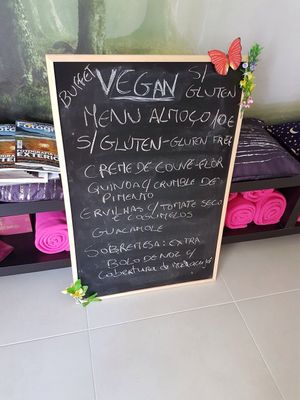 BUFFET VEGAN S/ GLUTEN
MENU ALMOÇO 10€
S/ GLÚTEN-GLUTEN FREE
CREME DE COUVE-FLOR
QUINOA C/ CRUMBLE DE
PIMENTO
ERVILHAS C/ TOMATE SECO
E COGUMELOS
GUACAMOLE
SOBREMESA: EXTRA
BOLO DE NOZ C/
COBERTURA DE MARACUJÁ
Fotografia
EXTERIOR